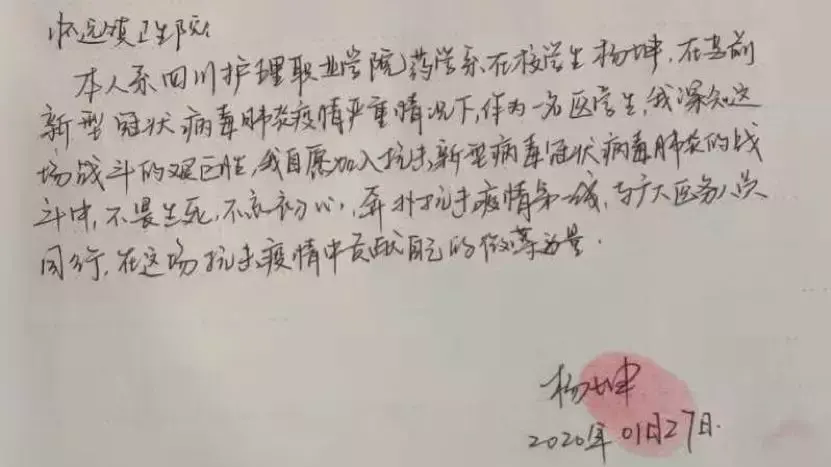 怀远镇卫生院:
本人系四川护理职业学院药学系在校学生杨坤,在当前
新型冠状病毒肺炎疫情严重情况下,作为一名医学生,我深知这
场战斗的艰巨性,我自愿加入抗击新型病毒冠状病毒肺炎的战
斗中,不畏生死,不忘初心,奔赴抗击疫情第一线,与广大医务人员
同行,在这场抗击疫情中贡献自己的微薄力量.
杨坤
2020年01月27日.